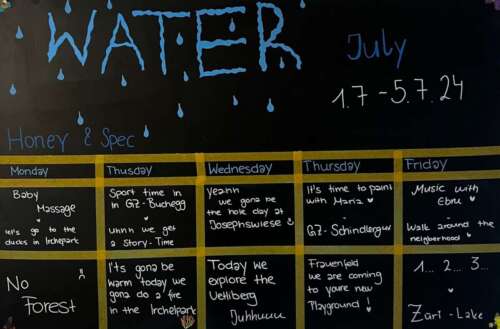 WATER
July
1.7 - 5.7.24
Honey & Spec
Monday
Thusday
Wednesday
Thursday
Friday
Baby
Massage
let's go to the
ducks in Irchelpark
Sport time in
in GZ-Buchegg
Uhhh we get
a Story-Time
Yeahh
we gona be
the hole day at
Josephswiese
It's time to paint
with Maria
GZ-Schindlergut
Music with
Ebru
Walk around the
neigberhead
No
Forest
It's gona be
warm today we
gona do a fire
in the Irchelpark
Today we
explore the
Uetliberg
Juhhuuu
Frauenfeld
we are coming
to youre new
Playground!
1... 2... 3...
Züri-Lake